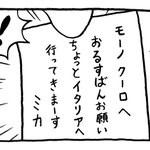 モーノクーロへ
おるすばんお願い
ちょっとイタリアへ
行ってきまーす
ミカ